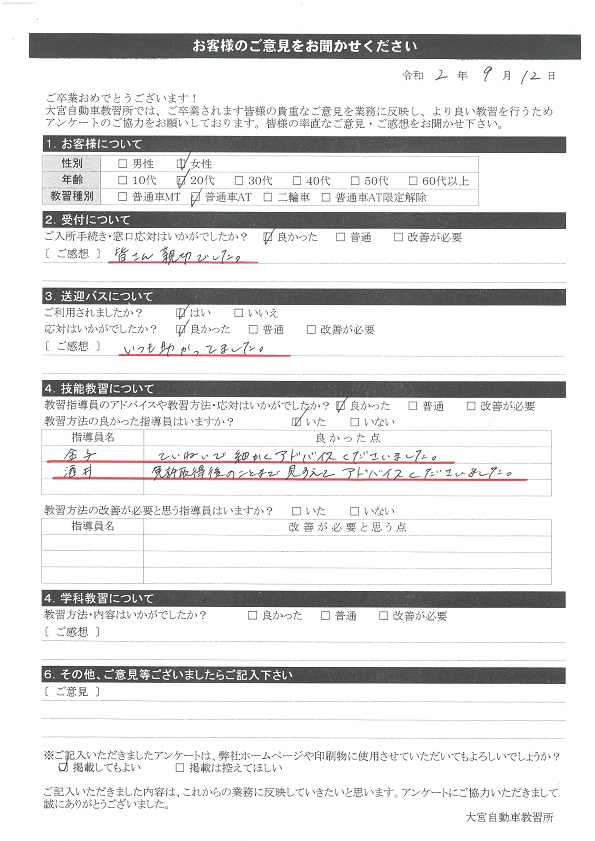 お客様のご意見をお聞かせください
令和 2 年 9 月 12 日
ご卒業おめでとうございます！
大宮自動車教習所では、ご卒業されます皆様の貴重なご意見を業務に反映し、より良い教習を行うため
アンケートのご協力をお願いしております。皆様の率直なご意見・ご感想をお聞かせ下さい。
1. お客様について
性別 □ 男性 ☑ 女性
年齢 □ 10代 ☑ 20代 □ 30代 □ 40代 □ 50代 □ 60代以上
教習種別 □ 普通車MT ☑ 普通車AT □ 二輪車 □ 普通車AT限定解除
2. 受付について
ご入所手続き・窓口応対はいかがでしたか？ ☑ 良かった □ 普通 □ 改善が必要
［ ご感想 ］ 皆さん親切でした。
3. 送迎バスについて
ご利用されましたか？ ☑ はい □ いいえ
応対はいかがでしたか？ ☑ 良かった □ 普通 □ 改善が必要
［ ご感想 ］ いつも助かってました。
4. 技能教習について
教習指導員のアドバイスや教習方法・応対はいかがでしたか？ ☑ 良かった □ 普通 □ 改善が必要
教習方法の良かった指導員はいますか？ ☑ いた □ いない
指導員名 良かった点
金子 ていねいで細かくアドバイスくださいました。
酒井 免許取得後のことまで見すえてアドバイスくださいました。
教習方法の改善が必要と思う指導員はいますか？ □ いた □ いない
指導員名 改善が必要と思う点
4. 学科教習について
教習方法・内容はいかがでしたか？ □ 良かった □ 普通 □ 改善が必要
［ ご感想 ］
6. その他、ご意見等ございましたらご記入下さい
［ ご意見 ］
※ご記入いただきましたアンケートは、弊社ホームページや印刷物に使用させていただいてもよろしいでしょうか？
☑ 掲載してもよい □ 掲載は控えてほしい
ご記入いただきました内容は、これからの業務に反映していきたいと思います。アンケートにご協力いただきまして
誠にありがとうございました。
大宮自動車教習所